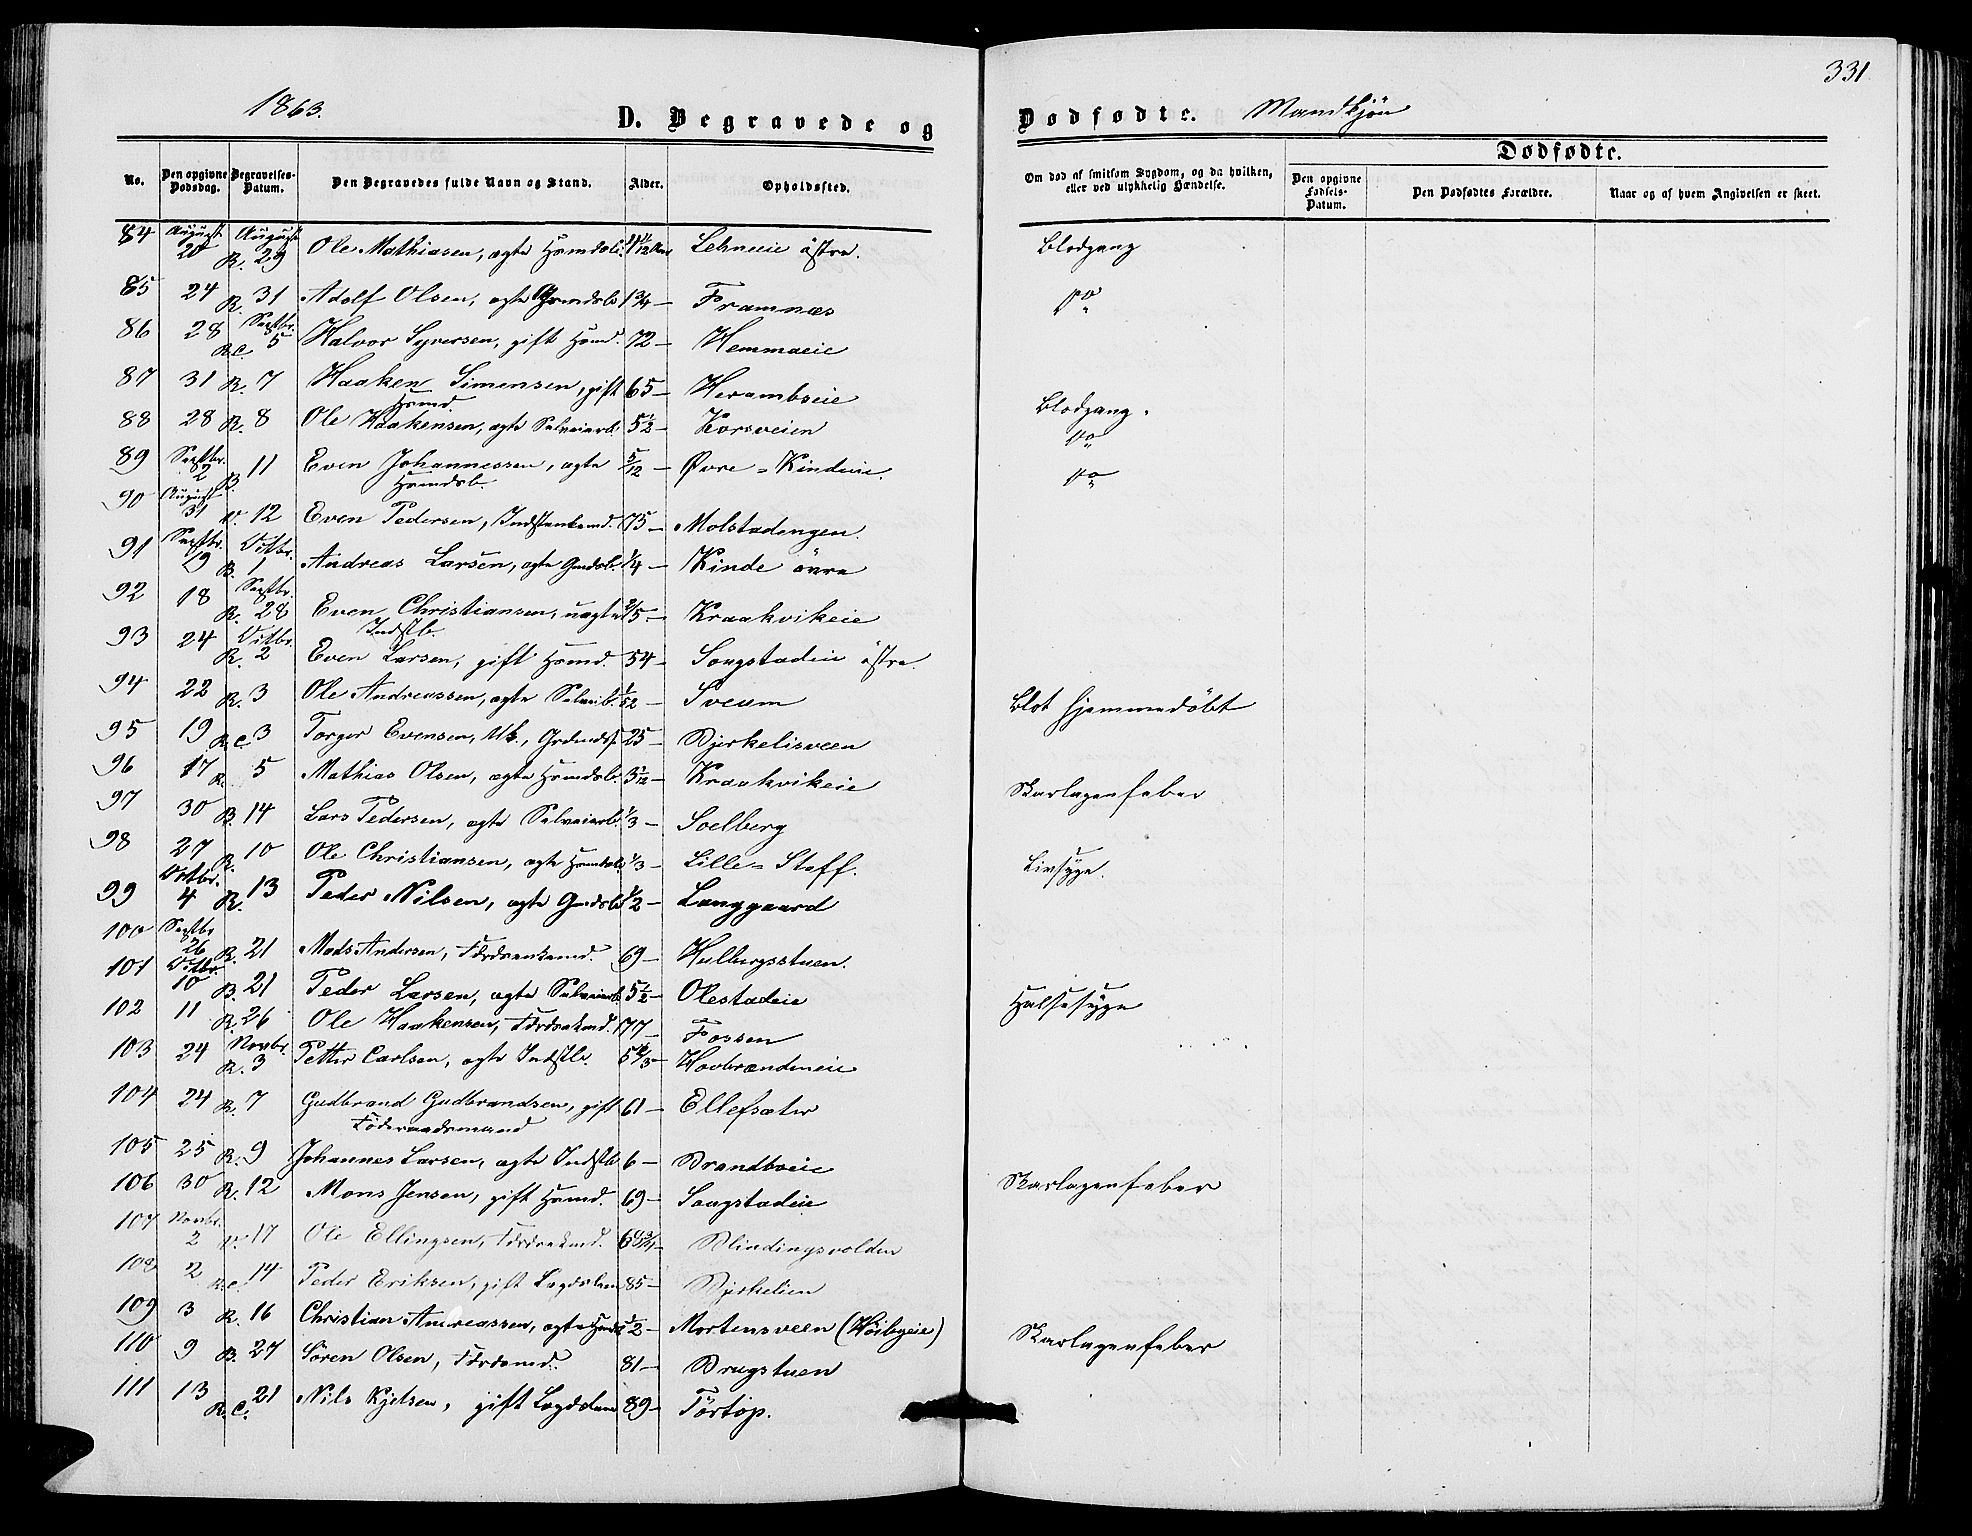 331
1863.
D. Begravede og Dødfødte. Mandkjön
Dødfødte.
No. Den opgivne Dødsdag. Begravelses-Datum. Den Begravedes fulde Navn og Stand. Alder. Opholdssted. Om død af smitsom Sygdom, og da hvilken, eller ved ulykkelig Hændelse. Den opgivne Fødsels-Datum. Den Dødfødtes Forældre. Naar og af hvem Angivelsen er skeet.
84 August 20 August R. 29 Ole Mathiasen, ægte Huusmdsb. 11/12 Aar Lehneie östre. Blodgang
85 24 R. 31 Adolf Olsen, ægte Grmdsb 1 3/4 — Framnæs do
86 28 Septbr. R.C. 5 Halvor Syversen, gift Huusmd. 72 — Hemmaeie
87 31 R. 7 Haaken Simensen, gift Huusmd. 65 — Herambseie
88 28 R. 8 Ole Haakensen, ægte Selveierb. 5 1/2 — Korsveien Blodgang.
do
89 Septbr. 2 B. 11 Even Johannessen, ægte Huusmdsb. 5/12 — Øvre-Kindeie. do
90 August 31 V. 12 Even Pedersen, Indstenkemd. 75 — Molstadengen.
91 Septbr. 19 Octbr. B. 1 Andreas Larsen, ægte Gmdsb. 1/4 — Kinde övre
92 18 Septbr. R. 28 Even Christiansen, uægte Indstb. 2/5 — Kraakvikeie
93 24 Octbr. R. 2 Even Larsen, gift Huusmd. 54 — Sougstadeie östre.
94 22 R. 3 Ole Andreassen, ægte Selveib. 1/52 — Sveum Blot hjemmedöbt
95 19 R.C. 3 Torger Evensen, Uk., Grdmds. 25 — Bjerkelisveen
96 17 R. 5 Mathias Olsen, ægte Huusmdsb. 3 1/2 — Kraakvikeie Skarlagenfeber
97 30 B. 14 Lars Pedersen, ægte Selveierb. 1/3 — Soelberg
98 27 R. 10 Ole Christiansen, ægte Huusmdsb 1/3 — Lille-Staff. Livsyge.
99 Octbr. 4 R. 13 Peder Nilsen, ægte Gmdsb 1/2 — Langgaard
100 Septbr 26 R. 21 Mads Andersen, Fdrdsenkemd. 69 — Hulbergsstuen.
101 Octbr. 10 B. 21 Peder Larsen, ægte Selveierb. 5 1/2 — Olestadeie Halsesyge
102 11 R. 26 Ole Haakensen, Fdrdsenkmd. 77 — Fossen
103 24 Novbr. R. 3 Petter Carlsen, ægte Indstb. 5 2/3 — Hovbrændeneie
104 24 R. 7 Gudbrand Gudbrandsen, gift Föderaadsmand 61 — Ellefsæter
105 25 R. 9 Johannes Larsen, ægte Indstb 6 — Brandboeie
106 30 R. 12 Mons Jensen, gift Huusmd. 69 — Sougstadeie Skarlagenfeber
107 Novbr. 2 V. 17 Ole Ellingsen, Fdrdsenkmd. Blindingsvolden
108 2 R.C. 14 Peder Eriksen, gift Lægdslem 85 — Bjerkelien
109 3 R. 16 Christian Andreassen, ægte Huusmdsb 1/2 — Mortensveen (Höibyeie)
110 9 B. 27 Sören Olsen, Fdrdsmd. 81 — Brugstuen Skarlagenfeber
111 13 R.C. 21 Nils Kjelsen, gift Lægdslem 89 — Törtop.